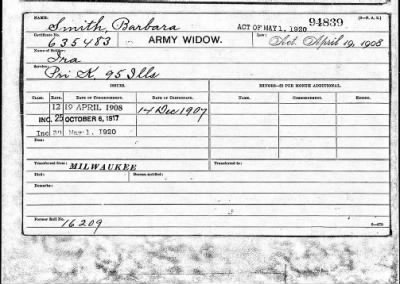 NAME: Smith, Barbara ACT OF MAY 1, 1920 94839
Certificate No. 635483 ARMY WIDOW. Law: Act April 19, 1908
Name of Soldier: Ira
Service: Pri K, 95 Ills
ISSUES. $2 PER MONTH ADDITIONAL
CLASS. RATE. DATE OF COMMENCEMENT. DATE OF CERTIFICATE.
12 19 APRIL 1908 14 Dec 1907
INC. 25 OCTOBER 6, 1917
Inc 30 May 1, 1920
Transferred from: MILWAUKEE
Died: Bureau notified:
Remarks:
Former Roll No. 16209